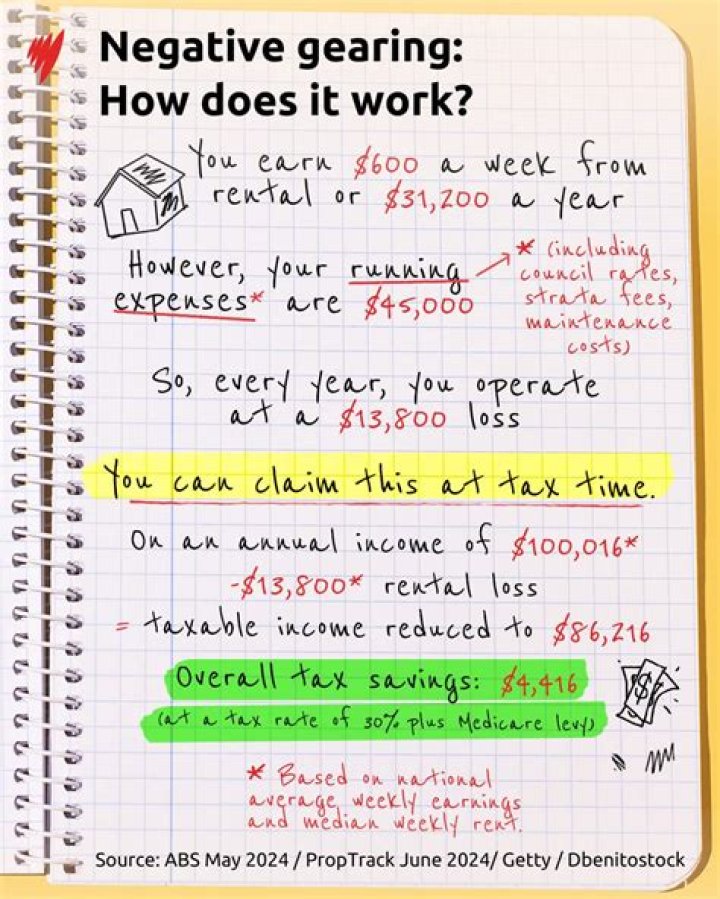 Negative gearing:
How does it work?
You earn $600 a week from
rental or $31,200 a year
However, your running
expenses* are $45,000
* (including
council rates,
strata fees,
maintenance
costs)
So, every year, you operate
at a $13,800 loss
You can claim this at tax time.
On an annual income of $100,016*
-$13,800* rental loss
= taxable income reduced to $86,216
Overall tax savings: $4,416
(at a tax rate of 30% plus Medicare levy)
* Based on national
average weekly earnings
and median weekly rent.
Source: ABS May 2024 / PropTrack June 2024/ Getty / Dbenitostock